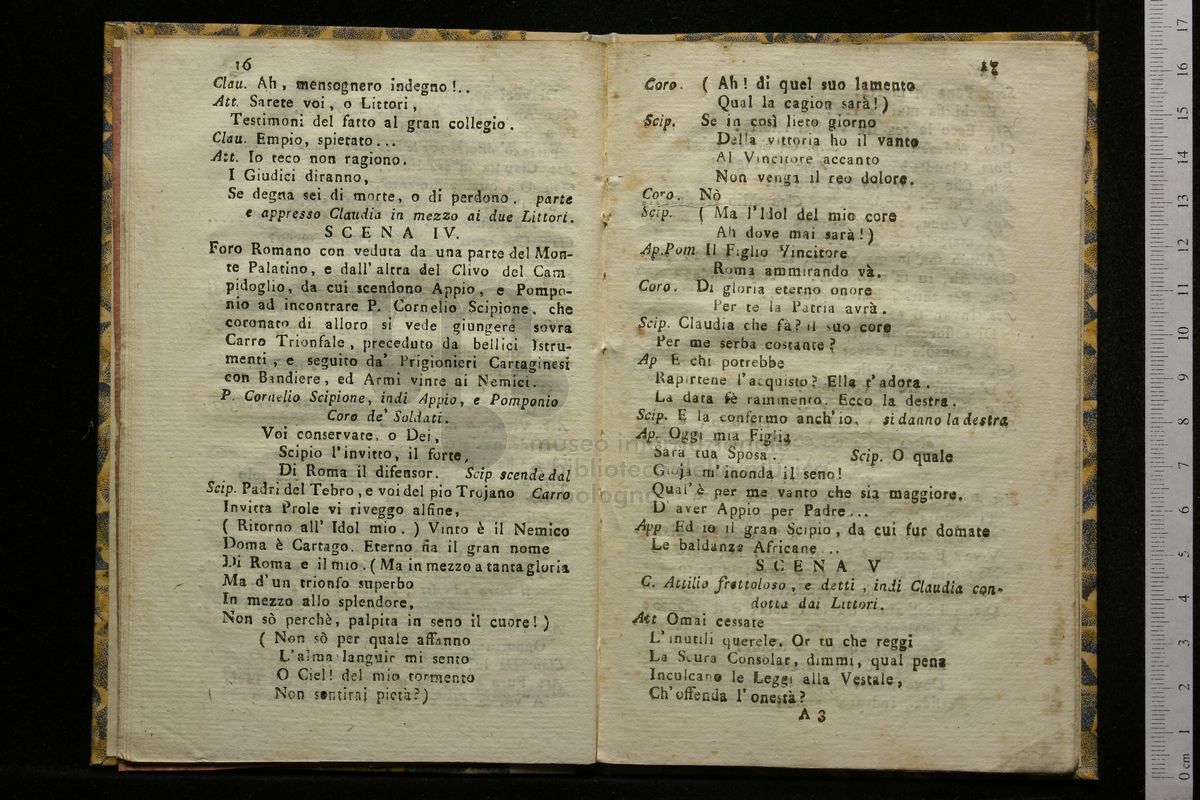 16
Clau. Ah, mensognero indegno!..
Att. Sarete voi, o Littori,
Testimoni del fatto al gran collegio.
Clau. Empio, spietato...
Att. Io teco non ragiono.
I Giudici diranno,
Se degna sei di morte, o di perdono. parte
e appresso Claudia in mezzo ai due Littori.
SCENA IV.
Foro Romano con veduta da una parte del Mon-
te Palatino, e dall' altra del Clivo del Cam
pidoglio, da cui scendono Appio, e Pompo-
nio ad incontrare P. Cornelio Scipione, che
coronato di alloro si vede giungere sovra
Carro Trionfale, preceduto da bellici Istru-
menti, e seguito da' Prigionieri Cartaginesi
con Bandiere, ed Armi vinte ai Nemici.
P. Cornelio Scipione, indi Appio, e Pomponio
Coro de' Soldati.
Voi conservate, o Dei,
Scipio l'invitto, il forte,
Di Roma il difensor. Scip scende dal
Scip. Padri del Tebro, e voi del pio Trojano Carro
Invitta Prole vi riveggo alfine,
( Ritorno all' Idol mio. ) Vinto è il Nemico
Doma è Cartago. Eterno fia il gran nome
Di Roma e il mio. ( Ma in mezzo a tanta gloria
Ma d'un trionfo superbo
In mezzo allo splendore,
Non sò perchè, palpita in seno il cuore! )
( Non sò per quale affanno
L'alma languir mi sento
O Ciel! del mio tormento
Non sentirai pietà?)
17
Coro. ( Ah! di quel suo lamento
Qual la cagion sarà!)
Scip. Se in così lieto giorno
Della vittoria ho il vanto
Al Vincitore accanto
Non venga il reo dolore.
Coro. Nò
Scip. ( Ma l'Idol del mio core
Ah dove mai sarà!)
Ap.Pom Il Figlio Vincitore
Roma ammirando và.
Coro. Di gloria eterno onore
Per te la Patria avrà.
Scip. Claudia che fà? il suo core
Per me serba costante?
Ap E chi potrebbe
Rapirtene l'acquisto? Ella t'adora.
La data fè rammento. Ecco la destra.
Scip. E la confermo anch' io. si danno la destra
Ap. Oggi mia Figlia
Sarà tua Sposa. Scip. O quale
Gioja m'inonda il seno!
Qual' è per me vanto che sia maggiore.
D' aver Appio per Padre...
App Ed io il gran Scipio, da cui fur domate
Le baldanze Africane...
SCENA V
C. Attilio frettoloso, e detti, indi Claudia con-
dotta dai Littori.
Att Omai cessate
L' inutili querele. Or tu che reggi
La Scura Consolar, dimmi, qual pena
Inculcano le Leggi alla Vestale,
Ch' offenda l' onestà?
A 3
museo
bologna
0 cm 1 2 3 4 5 6 7 8 9 10 11 12 13 14 15 16 17